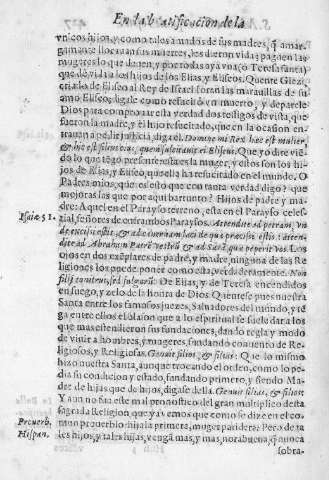 En la beatificacion de la
vnicos hijos, y como tales amados de sus madres, q̃ amar-
gamente lloran sus muertes, les dieron vida; paguen las
mugeres lo que deuen, y por todas aya vna (ò Teresa santa)
que dè vida a los hijos de los Elias, y Eliseos. Quente Giezi
criado de Eliseo al Rey de Israel lo ran las marauillas de su
amo Eliseo, digale como resucitò vn muerto, y deparele
Dios para comprouar esta verdad dos testigos de vista, que
fueron la madre, y el hijo resucitado, que en la ocasion en
trauan a pedir justicia, diga el. Domine mi Rex hæc est mulier,
& hic est filius eius, quem suscitauit Eliseus. Que yo dire vien
do lo que tẽgo presente esta es la muger, y estos son los hi-
jos de Elias, y Eliseo, que ella ha resucitado en el mundo. O
Padres mios, que es esto que con tanta verdad digo? que
mejoras las que por aqui barrunto? Hijos de padre y ma-
dre: Aquel en el Parayso terreno, esta en el Parayso celes-
Isaiæ 51.
tial, señores de entrambos Paraysos. Attendite ad petram, vn
de excisi estis, & ad cauernam laci de qua præcisi estis: atten-
dite ad Abraham Patrẽ vestrũ & ad Sarã quæ peperit vos. Los
ojos en dos exẽplares de padre, y madre, ninguna de las Re
ligiones los puede poner como esta, verdaderamente. Non
filij comitum, sed fulguris. De Elias, y de Teresa encendidos
en fuego, y zelo de la honra de Dios. Quentese pues nuestra
Santa entre los famosos juezes, Saluadores del mundo, y tẽ
ga entre ellos el blason que a lo espiritual se suele dar a los
que mas estendieron sus fundaciones, dando regla y modo
de viuir a hombres, y mugeres, fundando conuento de Re-
ligiosos, y Religiosas. Genuit filios, & filias: Que lo mismo
hizo nuestra Santa, aunque trocando el orden, como lo pe
dia su condicion y estado, fundando primero, y siendo Ma
dre de hijas que de hijos, digase della. Genuit filias, & filios
Y aun no fue este mal pronostico del gran multiplico desta
sagrada Religion, que ya vemos que como se dize en el co-
Prouerb.
Hispan.
mun prouerbio hija la primera, muger paridera: Pero de ta
les hijos, y tales hijas, vengã mas, y mas, norabuena, q̃ nunca
sobra-